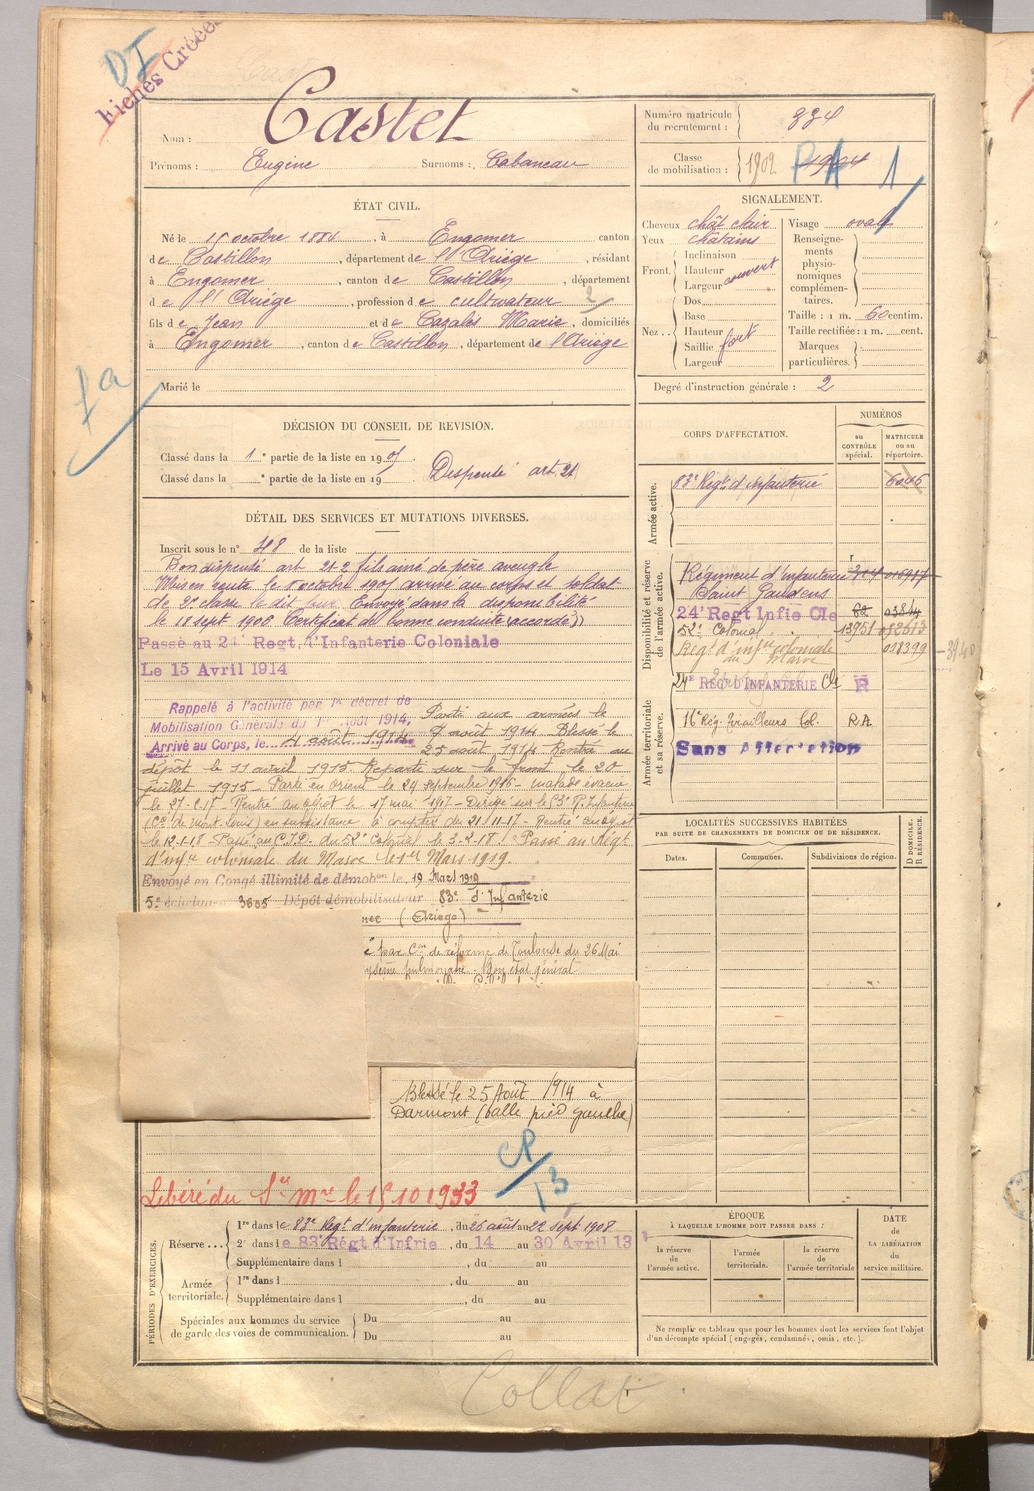 DI
Fiches Créées
Nom : Castet
Prénoms : Eugène Surnoms : Cabaneau
Numéro matricule du recrutement : 834
Classe de mobilisation : 1902
PA 1
ÉTAT CIVIL.
Né le 15 octobre 1884, à Engomer canton
de Castillon, département de l'Ariège, résidant
à Engomer, canton de Castillon, département
de l'Ariège, profession de cultivateur 2
fils de Jean et de Cazalès Marie, domiciliés
à Engomer, canton de Castillon, département de l'Ariège
Marié le
fa
SIGNALEMENT.
Cheveux chât clair
Yeux châtains
Front. Inclinaison
Hauteur couvert
Largeur
Nez.. Dos
Base
Hauteur
Saillie fort
Largeur
Visage ovale
Renseignements physionomiques complémentaires.
Taille : 1 m. 60 centim.
Taille rectifiée : 1 m. cent.
Marques particulières.
Degré d'instruction générale : 2
DÉCISION DU CONSEIL DE REVISION.
Classé dans la 1e partie de la liste en 1905.
Classé dans la e partie de la liste en 19
Dispensé art 21
DÉTAIL DES SERVICES ET MUTATIONS DIVERSES.
Inscrit sous le n° 48 de la liste
Bon dispensé art 21-2 fils aîné de père aveugle
Mis en route le 8 octobre 1905 arrivé au corps et soldat
de 2e classe le dit jour Envoyé dans la disponibilité
le 18 sept 1906. Certificat de bonne conduite (accordé)
Passé au 24e Regt. d'Infanterie Coloniale
Le 15 Avril 1914
Rappelé à l'activité par le décret de
Mobilisation Générale du 1er Août 1914,
Arrivé au Corps, le 4 août 1914
Parti aux armées le
7 août 1914 Blessé le
25 août 1914 Rentré au
dépôt le 11 avril 1915 Reparti sur le front le 20
juillet 1915 - Parti en orient le 24 septembre 1916 - malade évacué
le 27-2-17 - Rentré au dépôt le 17 mai 1917 - Dirigé sur le 53e R. Infanterie
(Cie de Mont-Louis) en subsistance à compter du 21-11-17 - Rentré au dépôt
le 12-1-18 - Passé au C.I.D. du 52e Colonial le 3-2-18. Passé au Régt
d'infie coloniale du Maroc le 1er Mars 1919.
Envoyé en Congé illimité de démobon le 19 Mars 1919
5e échelon n° 3605 Dépôt démobilisateur 83e d'Infanterie
(Ariège)
é par Con de réforme de Toulouse du 26 Mai
ysème pulmonaire. Bon état général
Blessé le 25 Août 1914 à
Darmont (balle pied gauche)
CP/13
Libéré du Sce mre le 15.10.1933
CORPS D'AFFECTATION.
NUMÉROS
au CONTRÔLE spécial.
MATRICULE ou au répertoire.
Armée active.
83e Régt d'infanterie 6046
Disponibilité et réserve de l'armée active.
Régiment d'infanterie
Saint Gaudens
24e Regt Infie Cle
52e Colonial 13951
Régt d'infie coloniale du Maroc 018399
Armée territoriale et sa réserve.
24e REG. D'INFANTERIE Cle R
16e Rég. Tirailleurs Col. RA
Sans Affectation
LOCALITÉS SUCCESSIVES HABITÉES
PAR SUITE DE CHANGEMENTS DE DOMICILE OU DE RÉSIDENCE.
Dates. Communes. Subdivisions de région. D DOMICILE. R RÉSIDENCE.
PÉRIODES D'EXERCICES.
Réserve... 1re dans le 83e Régt d'infanterie, du 26 août au 22 sept 1908
2e dans le 83e Régt d'Infrie, du 14 au 30 Avril 13
Supplémentaire dans l , du au
Armée territoriale. 1re dans l , du au
Supplémentaire dans l , du au
Spéciales aux hommes du service de garde des voies de communication. Du au
Du au
ÉPOQUE
À LAQUELLE L'HOMME DOIT PASSER DANS :
la réserve de l'armée active.
l'armée territoriale.
la réserve de l'armée territoriale
DATE DE LA LIBÉRATION du service militaire.
Ne remplir ce tableau que pour les hommes dont les services font l'objet
d'un décompte spécial (engagés, condamnés, omis, etc.).
Collat